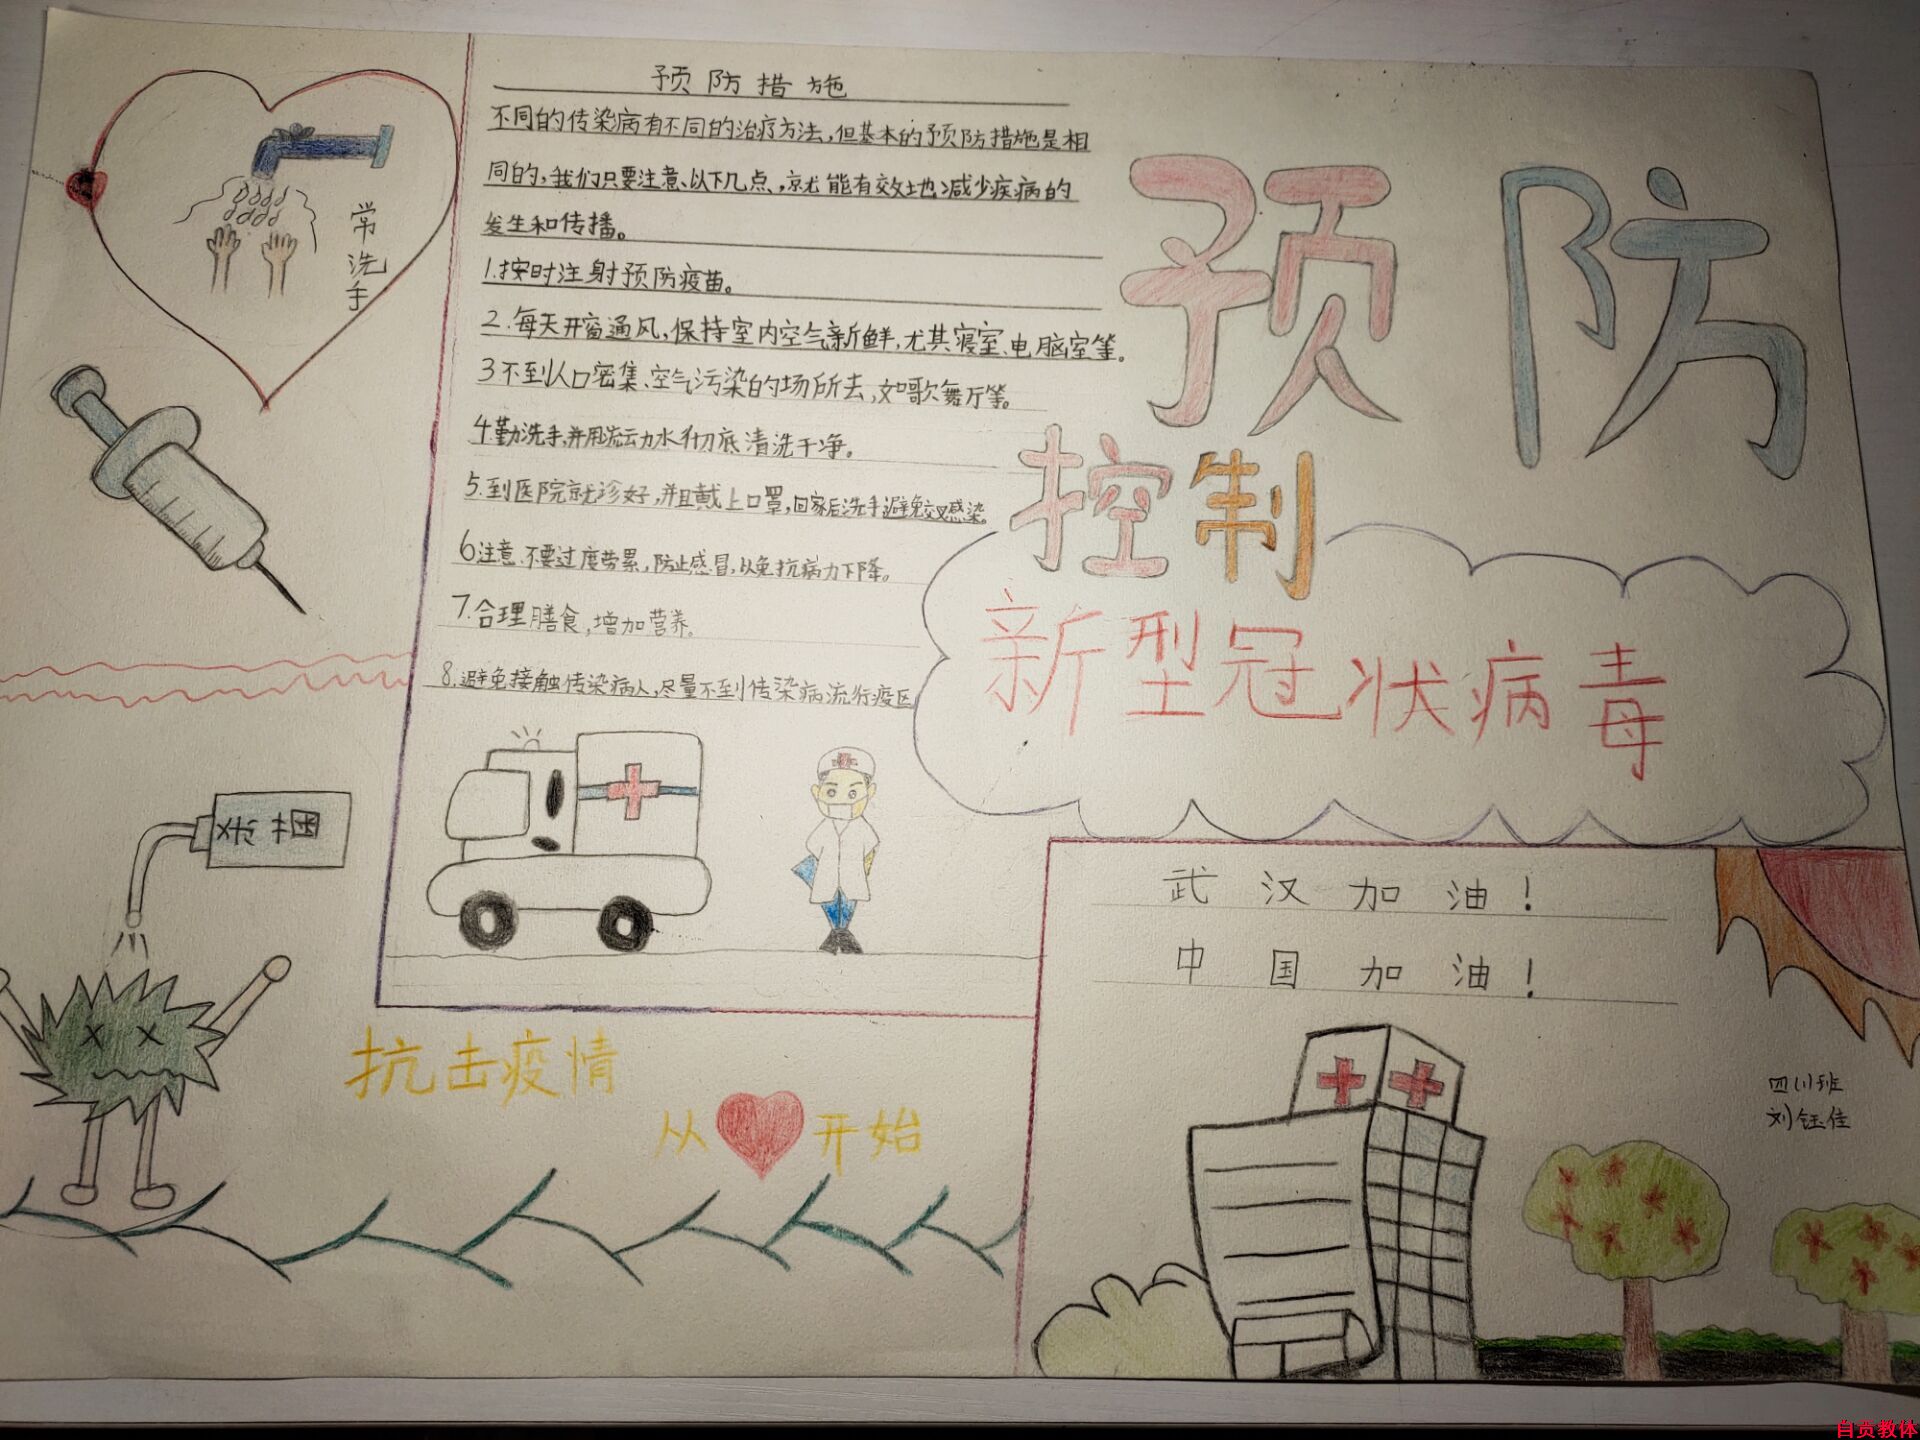 常洗手
预防措施
不同的传染病有不同的治疗方法,但基本的预防措施是相
同的,我们只要注意、以下几点,就能有效地减少疾病的
发生和传播。
1.按时注射预防疫苗。
2.每天开窗通风,保持室内空气新鲜,尤其寝室、电脑室等。
3不到人口密集、空气污染的场所去,如歌舞厅等。
4勤洗手,并用流动水彻底清洗干净。
5.到医院就诊好,并且戴上口罩,回家后洗手避免交叉感染。
6注意、不要过度劳累,防止感冒,以免抗病力下降。
7.合理膳食,增加营养。
8.避免接触传染病人,尽量不到传染病流行疫区
预防
控制
新型冠状病毒
武汉加油!
中国加油!
抗击疫情
从 开始
刘钰佳
自贡教体